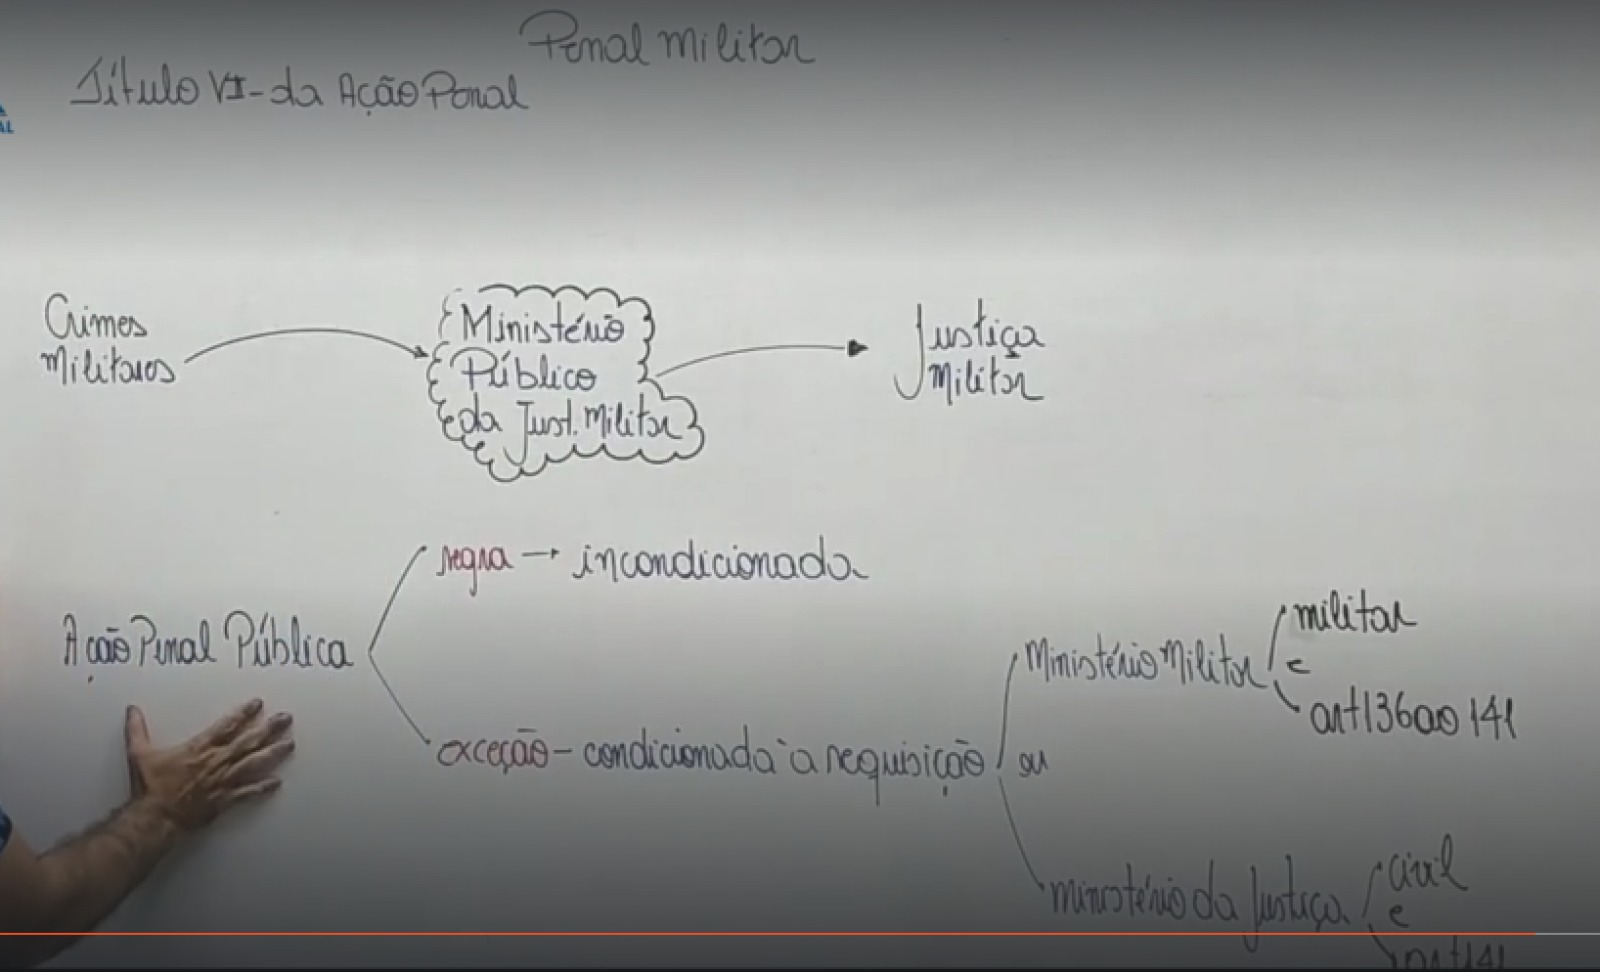 Penal Militar
Título VI - da Ação Penal
AL
Crimes
Militares
Ministério
Público
da Just. Militar
Justiça
Militar
regra → incondicionada
Ação Penal Pública
exceção - condicionada à requisição
Ministério Militar
militar
e
art 136 ao 141
ou
Ministério da Justiça
civil
e
art 141